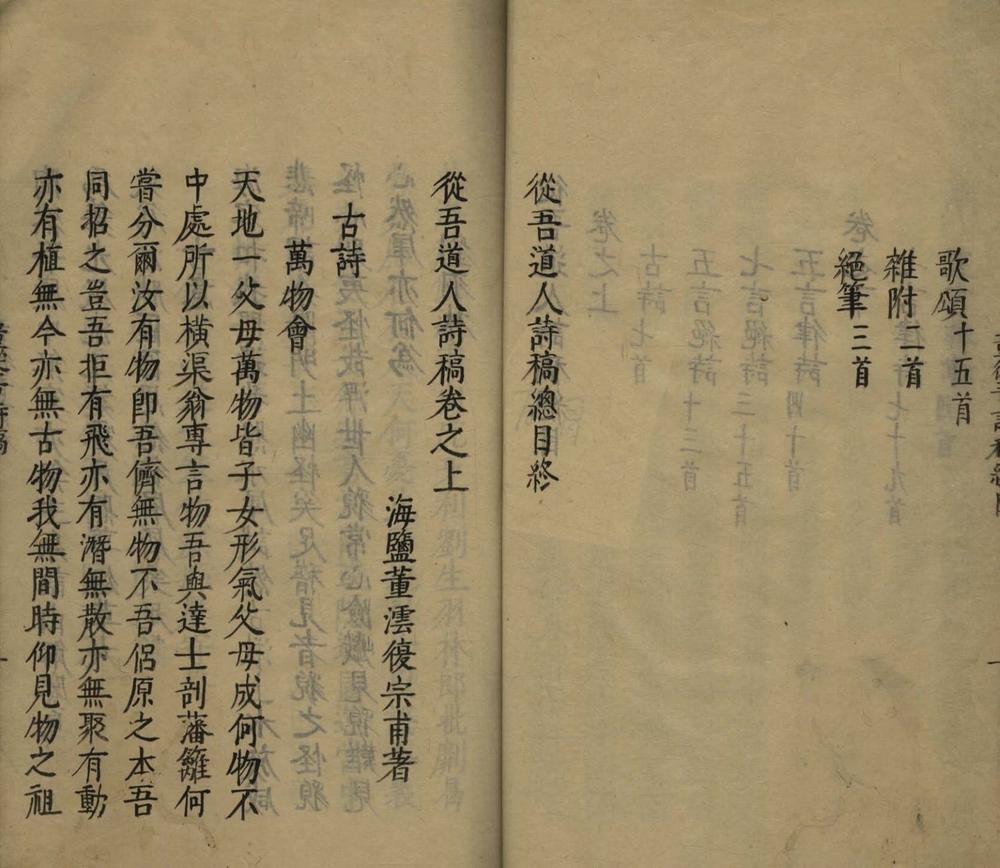 歌頌十五首
雜附二首
絕筆三首
從吾道人詩稿總目終
從吾道人詩稿卷之上
海鹽董澐復宗甫著
古詩
萬物會
天地一父母萬物皆子女形氣父母成何物不
中處所以橫渠翁專言物吾與達士剖藩籬何
嘗分爾汝有物卽吾儕無物不吾侶原之本吾
同招之豈吾拒有飛亦有潛無散亦無聚有動
亦有植無今亦無古物我無間時仰見物之祖